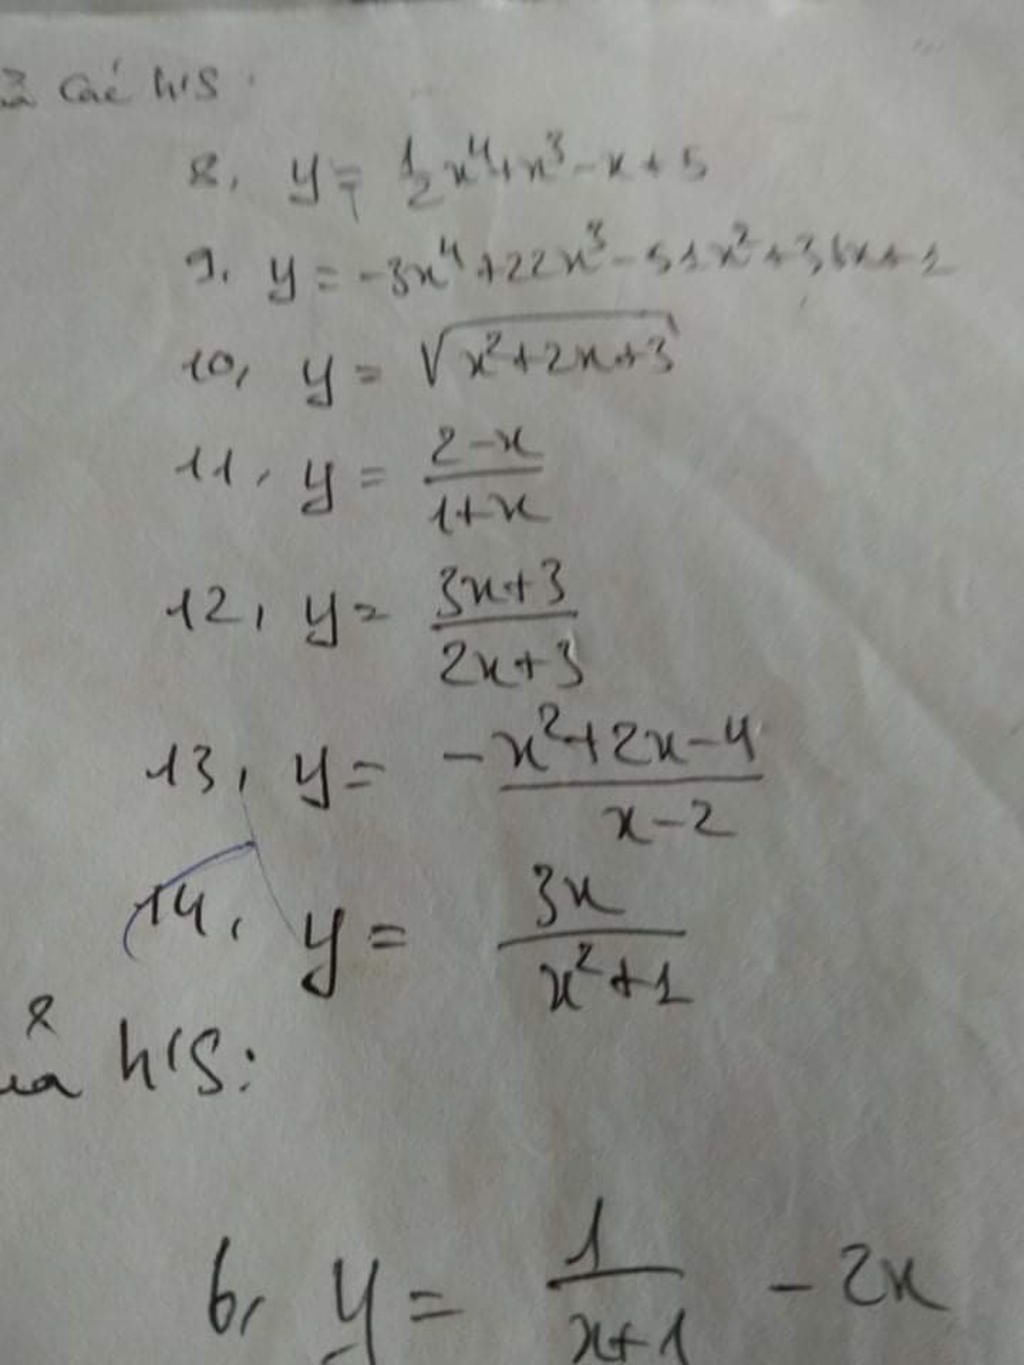 các h/S:
8, y = 1/2 x⁴+x³-x+5
9. y = -3x⁴+22x³-51x²+36x+1
10, y = √(x²+2x+3)
11, y = (2-x)/(1+x)
12, y = (3x+3)/(2x+3)
13, y = -(x²+2x-4)/(x-2)
14, y = 3x/(x²+1)
h/S:
6, y = 1/(x+1) - 2x